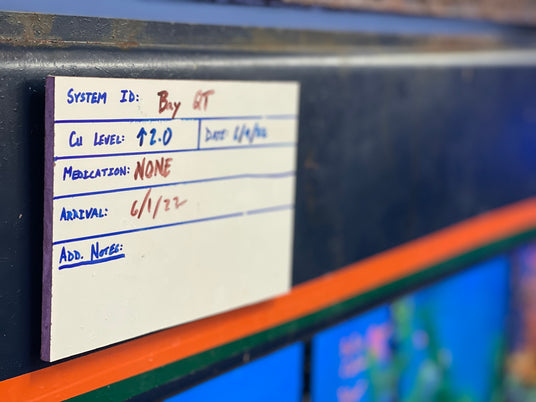 SYSTEM ID: Bay QT
Cu LEVEL: ↑2.0 DATE:
MEDICATION: NONE
ARRIVAL: 6/1/22
ADD. NOTES: